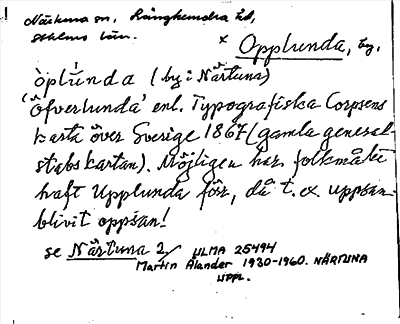 Närtuna sn, Långhundra hd,
Sthlms län.
x Opplunda, by,
òplúnda (by i Närtuna)
'Öfverlunda' enl. Typografiska Corpsens
karta över Sverige 1867 (gamla general-
stabskartan). Möjligen har folkmålet
haft Upplunda förr, då t.ex. uppsan
blivit oppsan!
se Närtuna 2/ ULMA 25494
Martin Ålander 1930-1960. NÄRTUNA
UPPL.